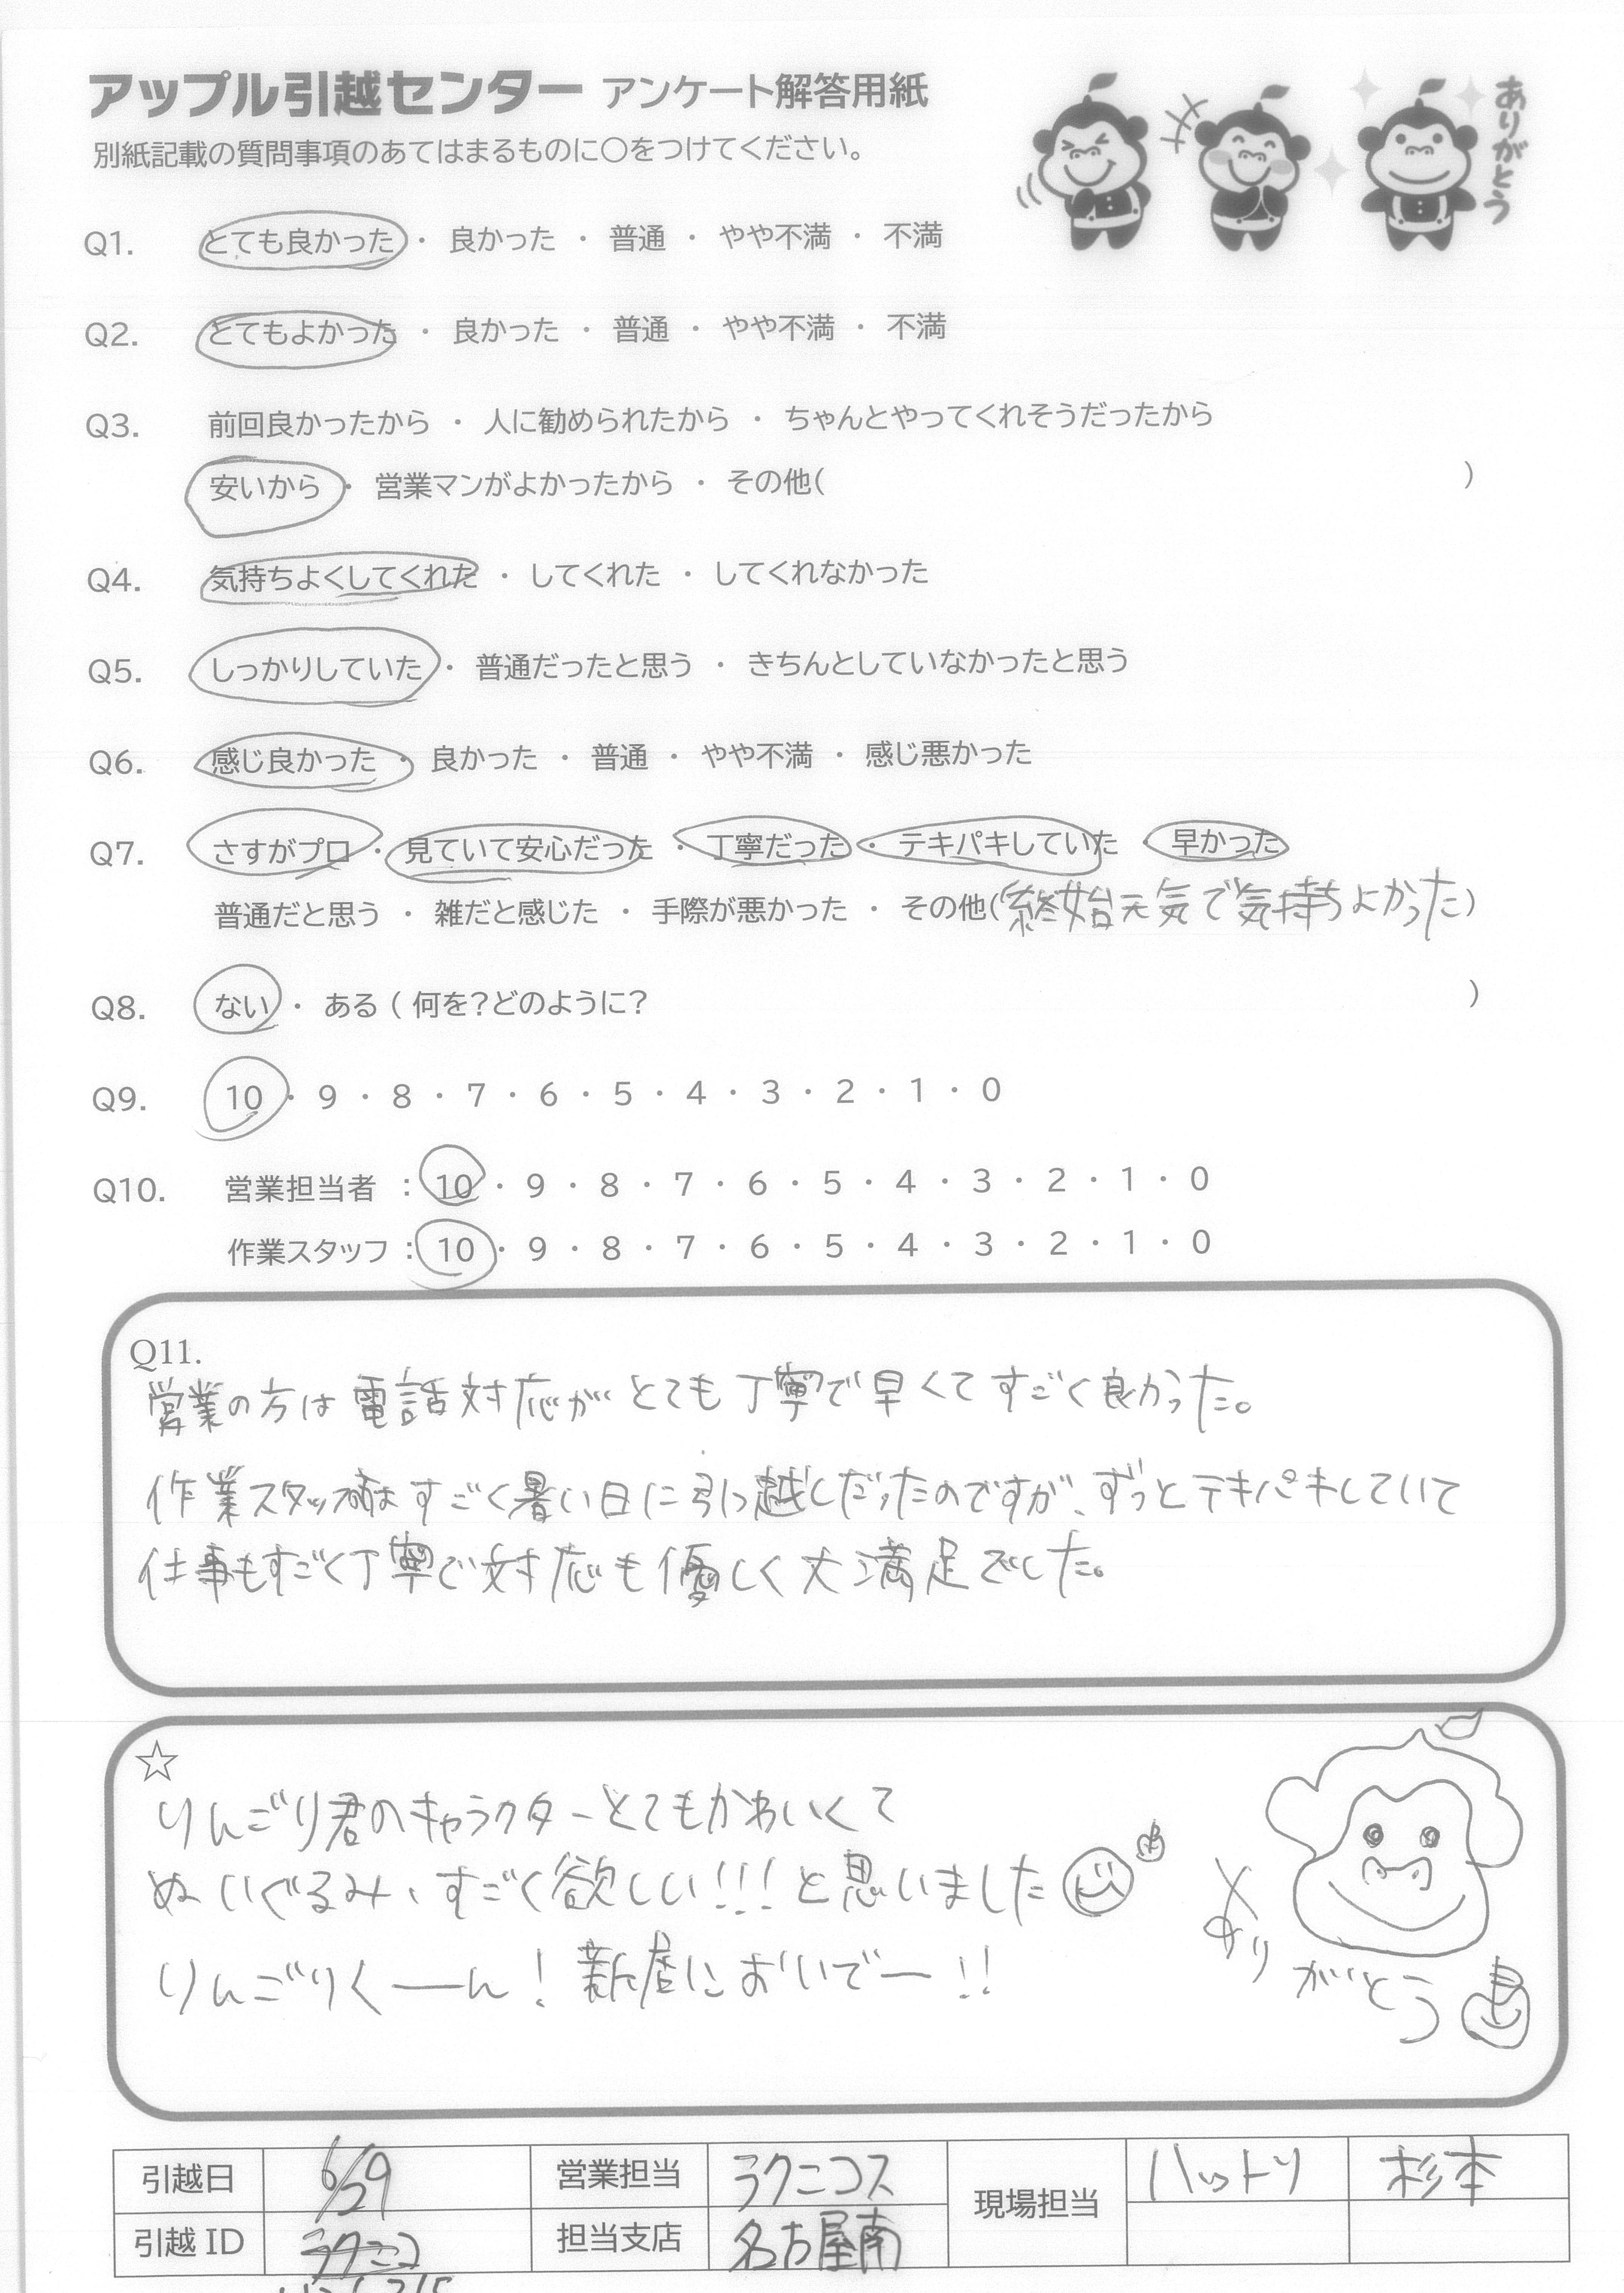 アップル引越センター アンケート解答用紙
別紙記載の質問事項のあてはまるものに○をつけてください。
ありがとう
Q1. とても良かった ・ 良かった ・ 普通 ・ やや不満 ・ 不満
Q2. とてもよかった ・ 良かった ・ 普通 ・ やや不満 ・ 不満
Q3. 前回良かったから ・ 人に勧められたから ・ ちゃんとやってくれそうだったから
安いから ・ 営業マンがよかったから ・ その他( )
Q4. 気持ちよくしてくれた ・ してくれた ・ してくれなかった
Q5. しっかりしていた ・ 普通だったと思う ・ きちんとしていなかったと思う
Q6. 感じ良かった ・ 良かった ・ 普通 ・ やや不満 ・ 感じ悪かった
Q7. さすがプロ ・ 見ていて安心だった ・ 丁寧だった ・ テキパキしていた ・ 早かった
普通だと思う ・ 雑だと感じた ・ 手際が悪かった ・ その他(終始元気で気持ちよかった)
Q8. ない ・ ある ( 何を?どのように? )
Q9. 10 ・ 9 ・ 8 ・ 7 ・ 6 ・ 5 ・ 4 ・ 3 ・ 2 ・ 1 ・ 0
Q10. 営業担当者 : 10 ・ 9 ・ 8 ・ 7 ・ 6 ・ 5 ・ 4 ・ 3 ・ 2 ・ 1 ・ 0
作業スタッフ : 10 ・ 9 ・ 8 ・ 7 ・ 6 ・ 5 ・ 4 ・ 3 ・ 2 ・ 1 ・ 0
Q11.
営業の方は電話対応がとても丁寧で早くてすごく良かった。
作業スタッフはすごく暑い日に引っ越しだったのですが、ずっとテキパキしていて
仕事もすごく丁寧で対応も優しく大満足でした。
☆
りんごり君のキャラクターとてもかわいくて
ぬいぐるみ、すごく欲しい!!!と思いました
りんごりくーん!新居においでー!!
ありがとう
引越日 6/29 営業担当 ラクニコス 現場担当 ハットリ 杉本
引越ID ラクニコ 担当支店 名古屋南